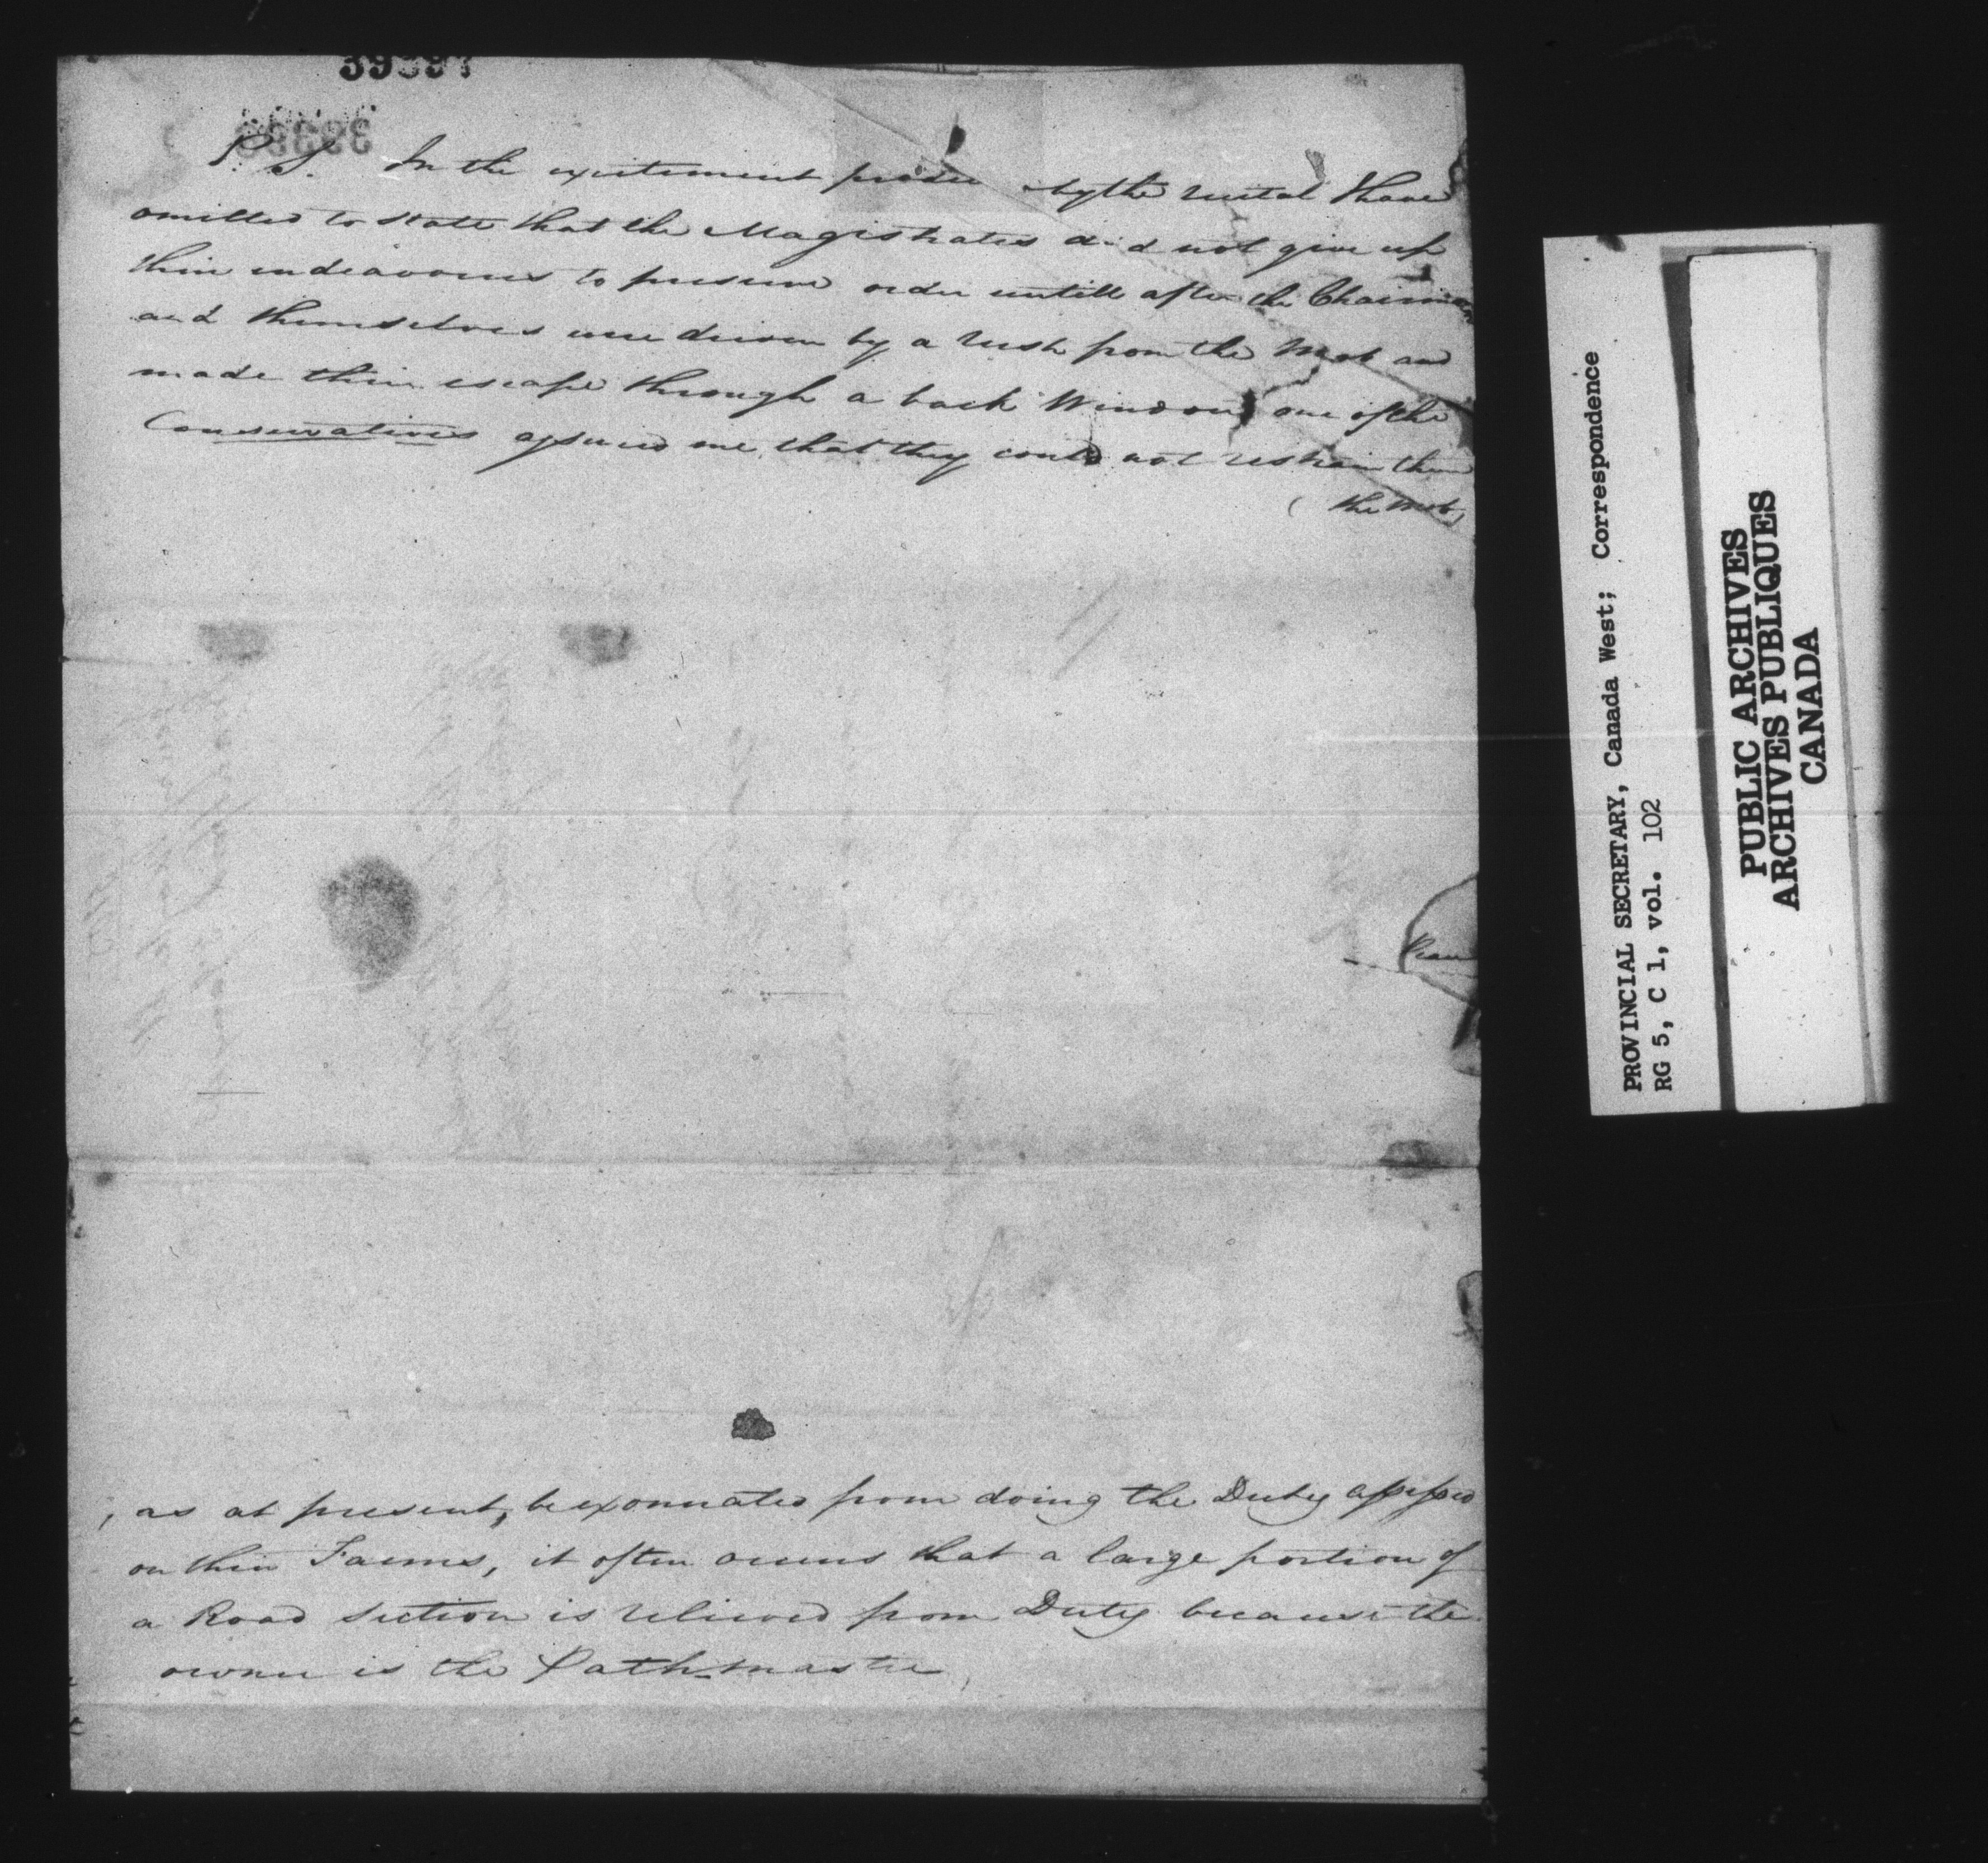 P.S. In the excitement by the recital I have
omitted to state that the Magistrates did not give up
their endeavours to preserve order untill after the Chairman
and themselves were driven by a rush from the Mob and
made their escape through a back Window one of the
Conservatives assured me that they could not restrain them
(the Mob)
, as at present, be exonnerated from doing the Duty assessed
on their Farms, it often occurs that a large portion of
a Road Section is relieved from Duty because the
owner is the Path-master
PROVINCIAL SECRETARY, Canada West; Correspondence
RG 5, C 1, vol. 102
PUBLIC ARCHIVES
ARCHIVES PUBLIQUES
CANADA